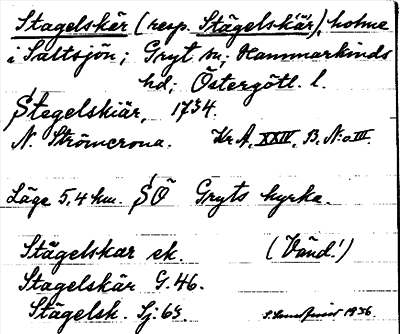 Stagelskär (resp. Stägelskiär), holme
i Saltsjön; Gryt sn; Hammarkinds
hd; Östergötl. l.
Stegelskiär, 1734.
N. Strömcrona. Kr.A. XXIV, B, N:o III.
Läge 5,4 km. SÖ Gryts kyrka.
Stägelskar ek. (Vänd!)
Stagelskär G. 46.
Stägelsk. Sj: 69. 1936.